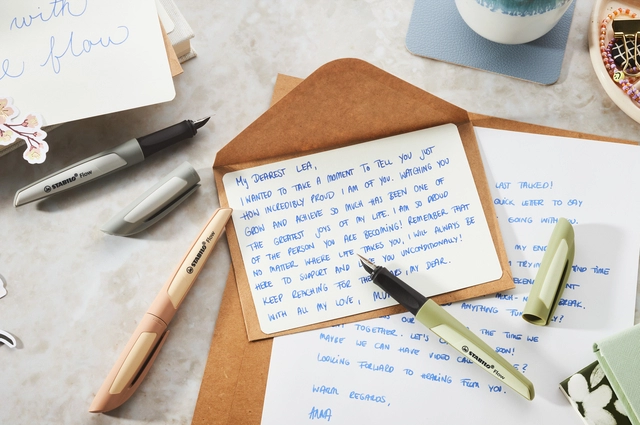 with
flow
STABILO flow
STABILO flow
My DEAREST LEA,
I WANTED TO TAKE A MOMENT TO TELL YOU JUST
HOW INCREDIBLY PROUD I AM OF YOU. WATCHING YOU
GROW AND ACHIEVE SO MUCH HAS BEEN ONE OF
THE GREATEST JOYS OF MY LIFE. I AM SO PROUD
OF THE PERSON YOU ARE BECOMING! REMEMBER THAT
NO MATTER WHERE LIFE TAKES YOU, I WILL ALWAYS BE
HERE TO SUPPORT AND YOU UNCONDITIONALLY!
KEEP REACHING FOR THE , MY DEAR.
WITH ALL MY LOVE,
STABILO flow
LAST TALKED!
QUICK LETTER TO SAY
GOING WITH
MY
TIME
BREAK.
TOGETHER. LET'S THE TIME WE
MAYBE WE CAN HAVE VIDEO SOON!
LOOKING FORWARD TO HEARING FROM YOU.
WARM REGARDS,
ANNA